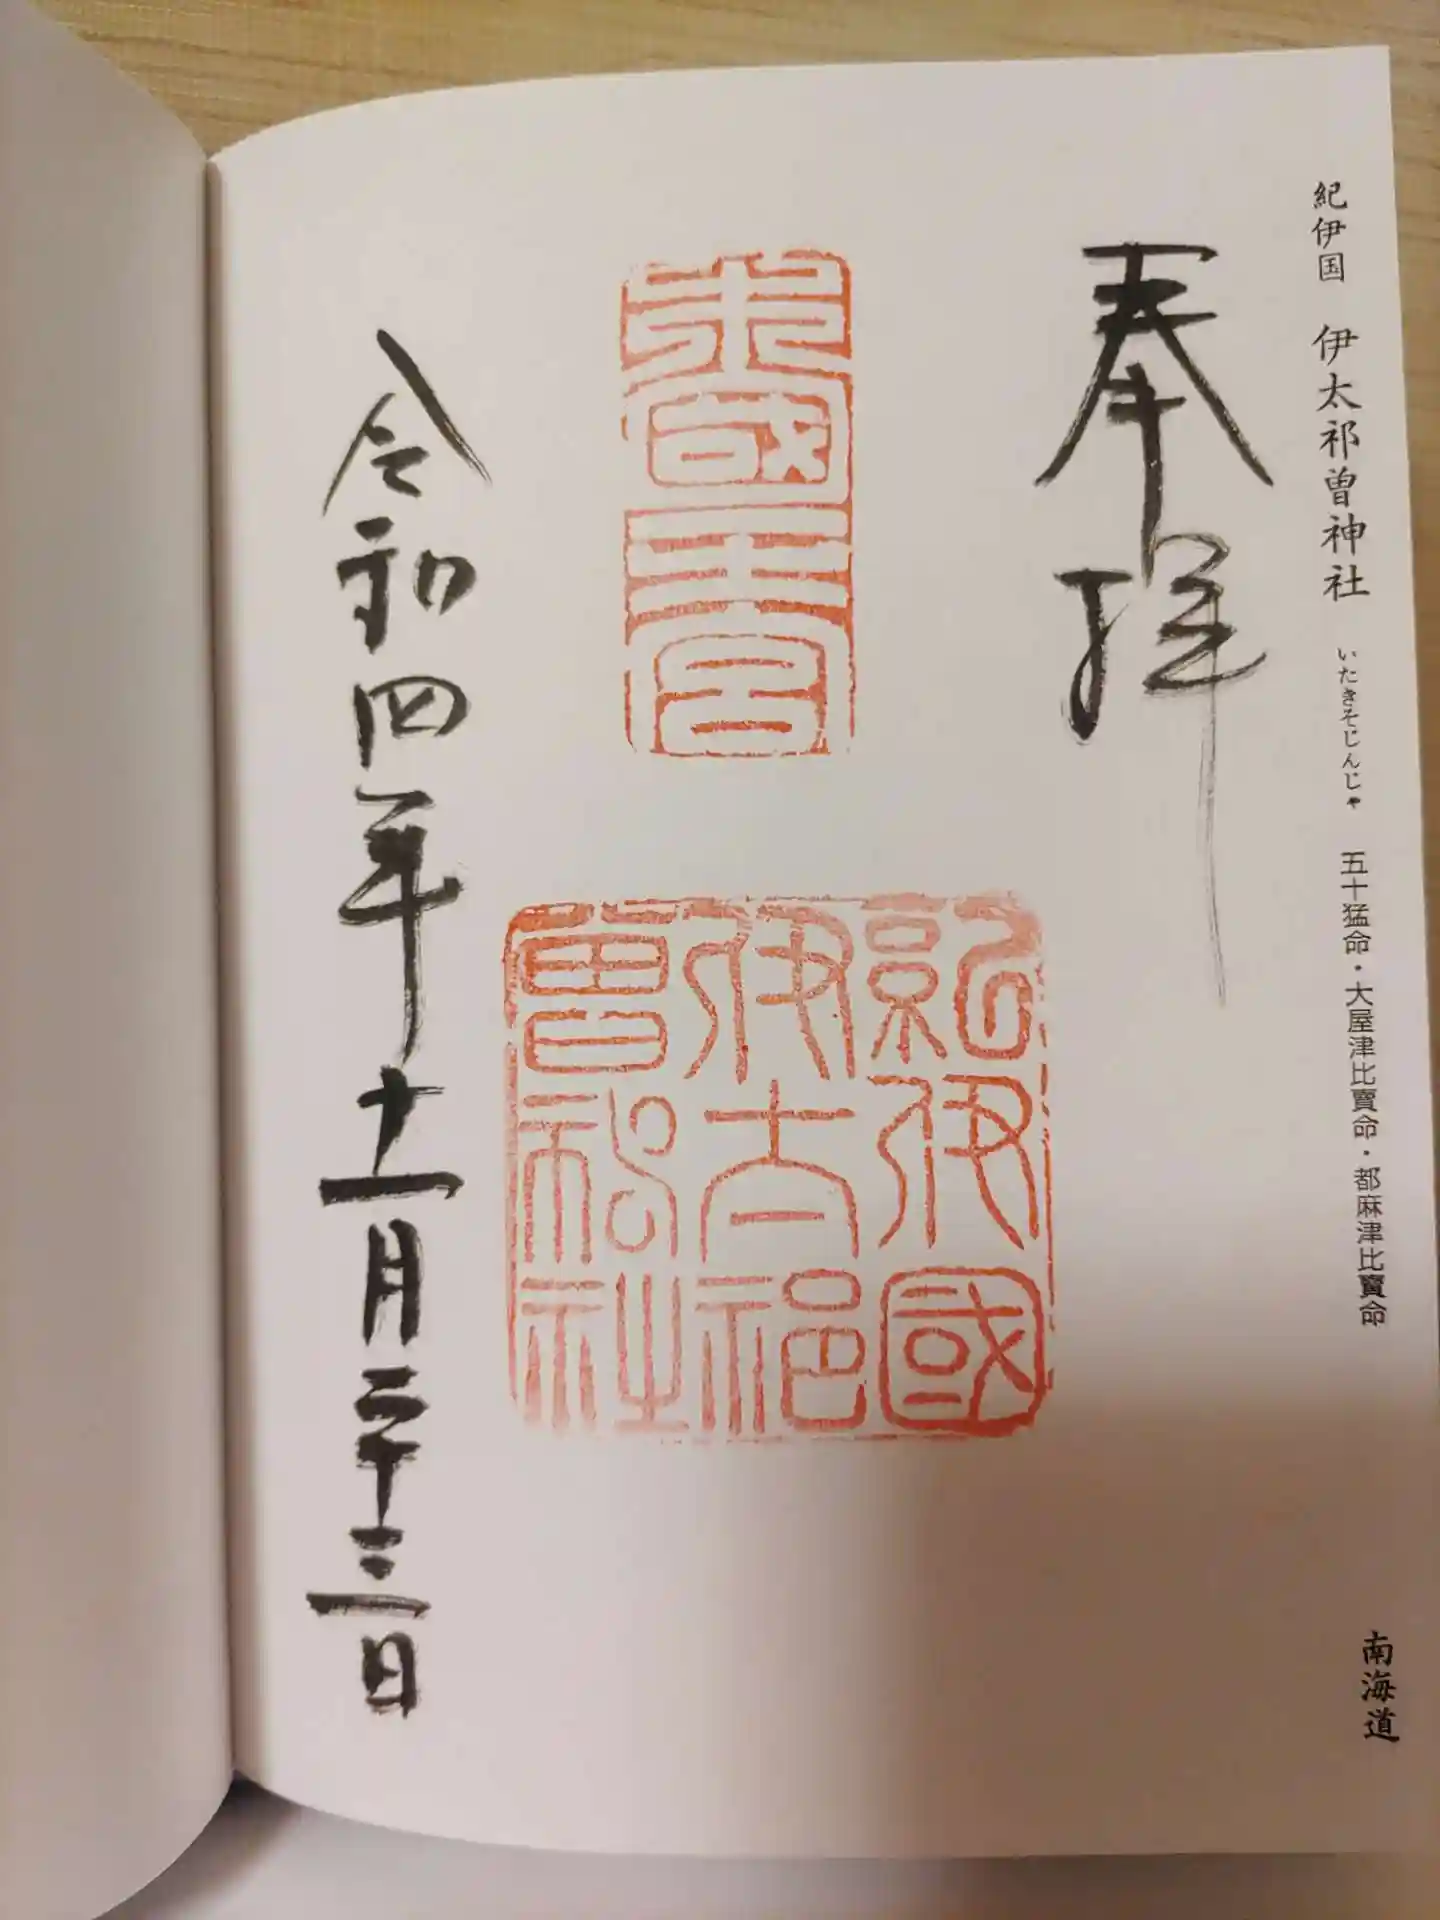 紀伊国 伊太祁曽神社 いたきそじんじゃ 五十猛命・大屋津比賣命・都麻津比賣命
南海道
奉拝
木國一宮
紀伊國
伊太祁
曽神社
令和四年十一月二十三日